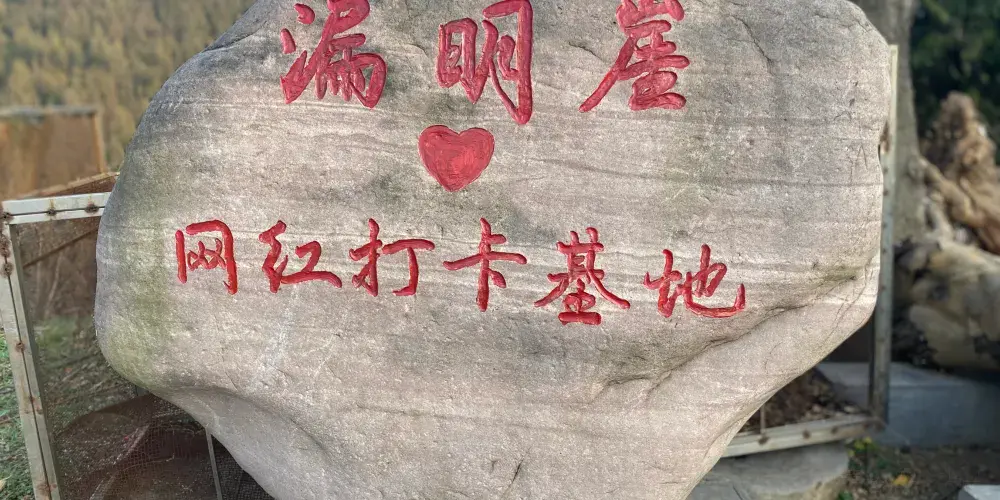 漏明崖
网红打卡基地